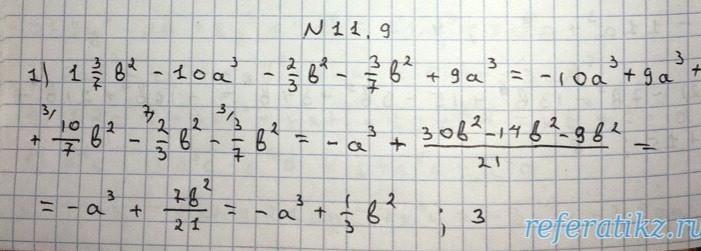 N 11.9
1) 1 3/7 b² - 10a³ - 2/3 b² - 3/7 b² + 9a³ = -10a³ + 9a³ +
+ ³⁾10/7 b² - ⁷⁾2/3 b² - ³⁾3/7 b² = -a³ + (30b² - 14b² - 9b²)/21 =
= -a³ + 7b²/21 = -a³ + 1/3 b² ; 3
referatikz.ru